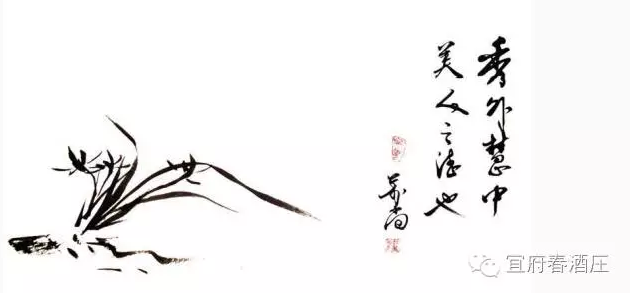 秀外慧中
美人之也
宜府春酒庄